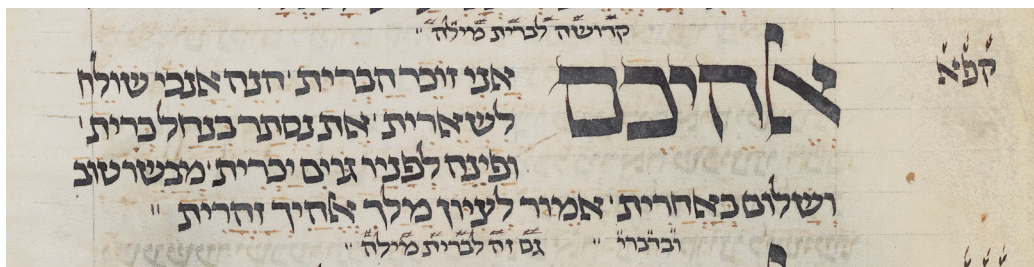 קדושה לברית מילה
קפא
אלהיכם אני זוכר הברית הנה אנכי שולח
לשארית את נסתר בנחל כרית
ופינה לפניו גוים יכרית מבשר טוב
ושלום באחרית אמור לציון מלך אלהיך זהרית
ובדברי גם זה לברית מילה